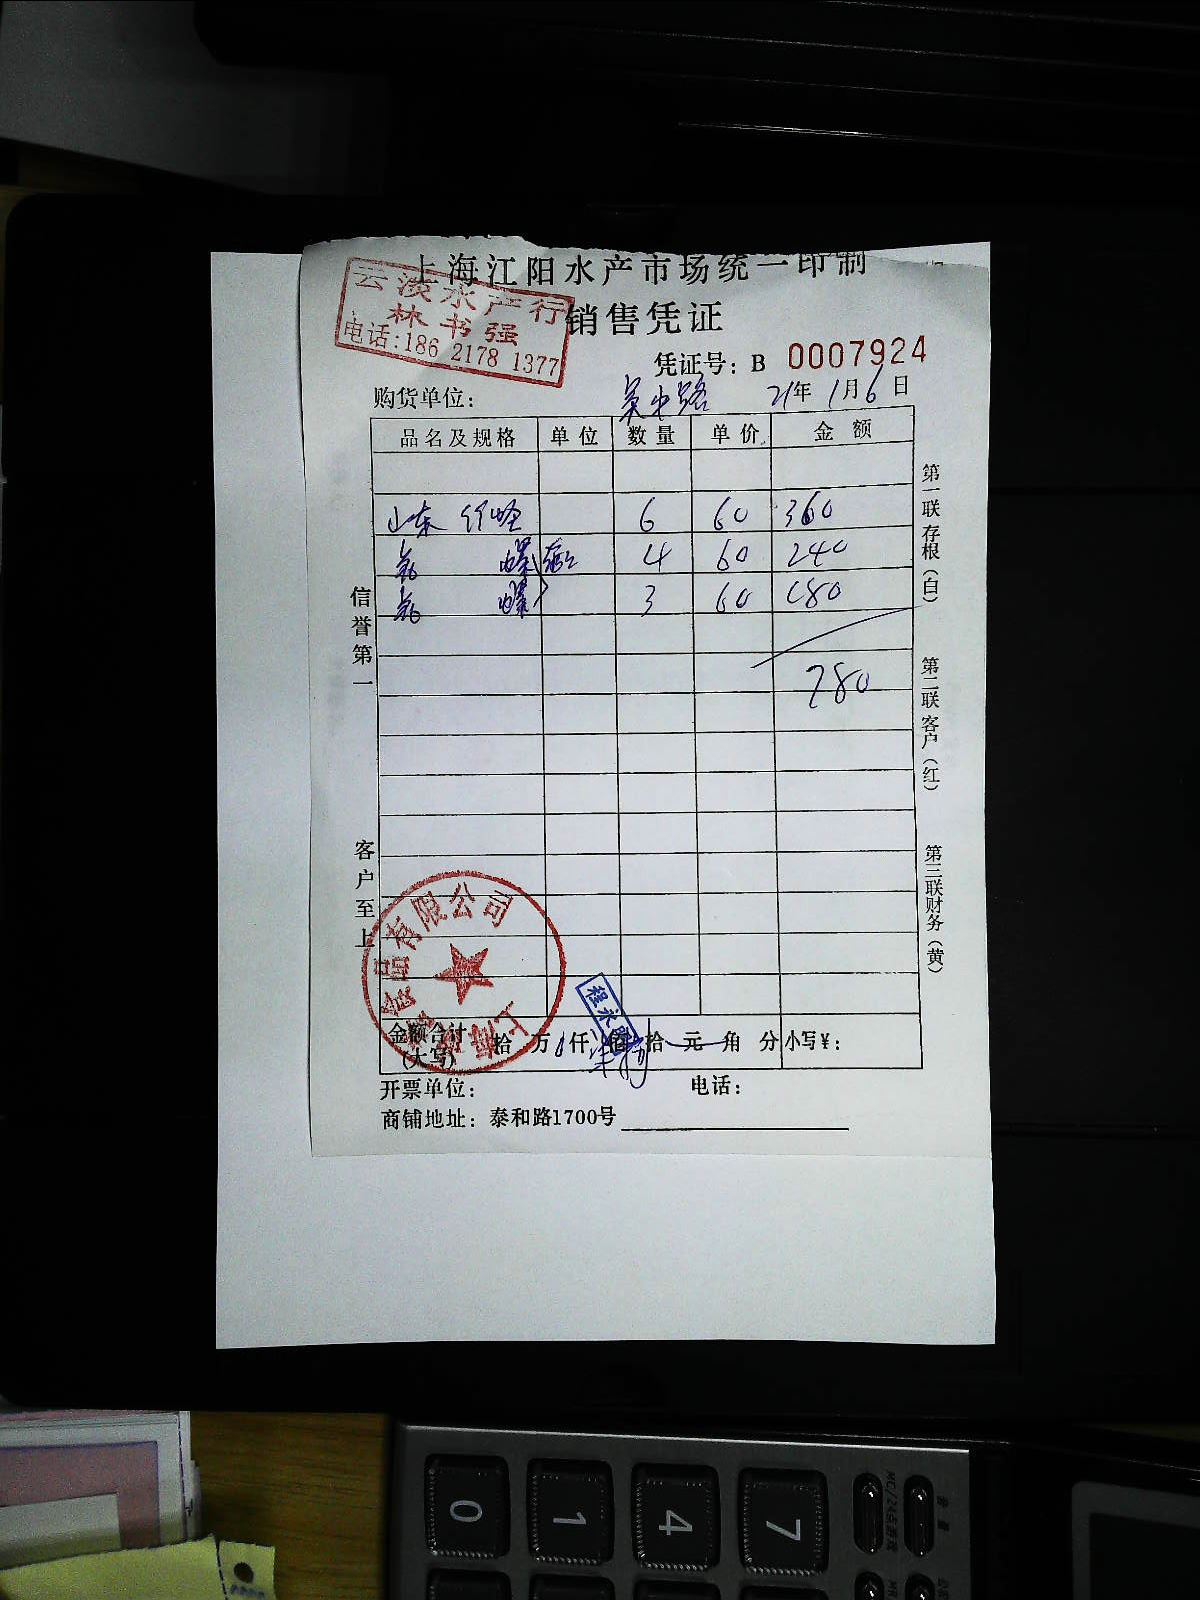 上海江阳水产市场统一印制
云淡水产行
林书强
电话:186 2178 1377
销售凭证
凭证号: B 0007924
购货单位: 吴中路 21年1月6日
品名及规格 单位 数量 单价 金额
山东 6 60 360
螺 4 60 240
螺 3 60 180
780
信誉第一
客户至上
第一联存根(白)
第二联客户(红)
第三联财务(黄)
上海 食品有限公司
程永
金额合计(大写) 拾 万 仟 佰 拾 元 角 分 小写¥:
开票单位: 电话:
商铺地址: 泰和路1700号
0
1
4
7